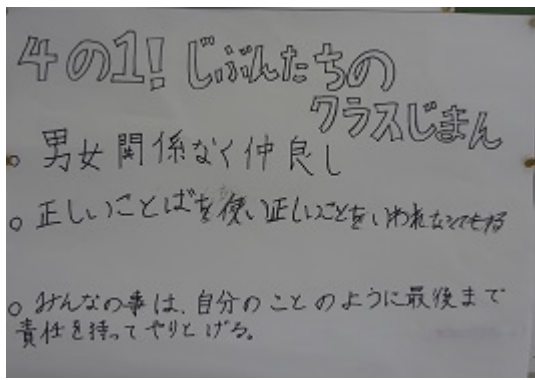 4の1! じぶんたちの
クラスじまん
○ 男女関係なく仲良し
○ 正しいことばを使い正しいことをいわれなくてもする
○ みんなの事は、自分のことのように最後まで
責任を持ってやりとげる。